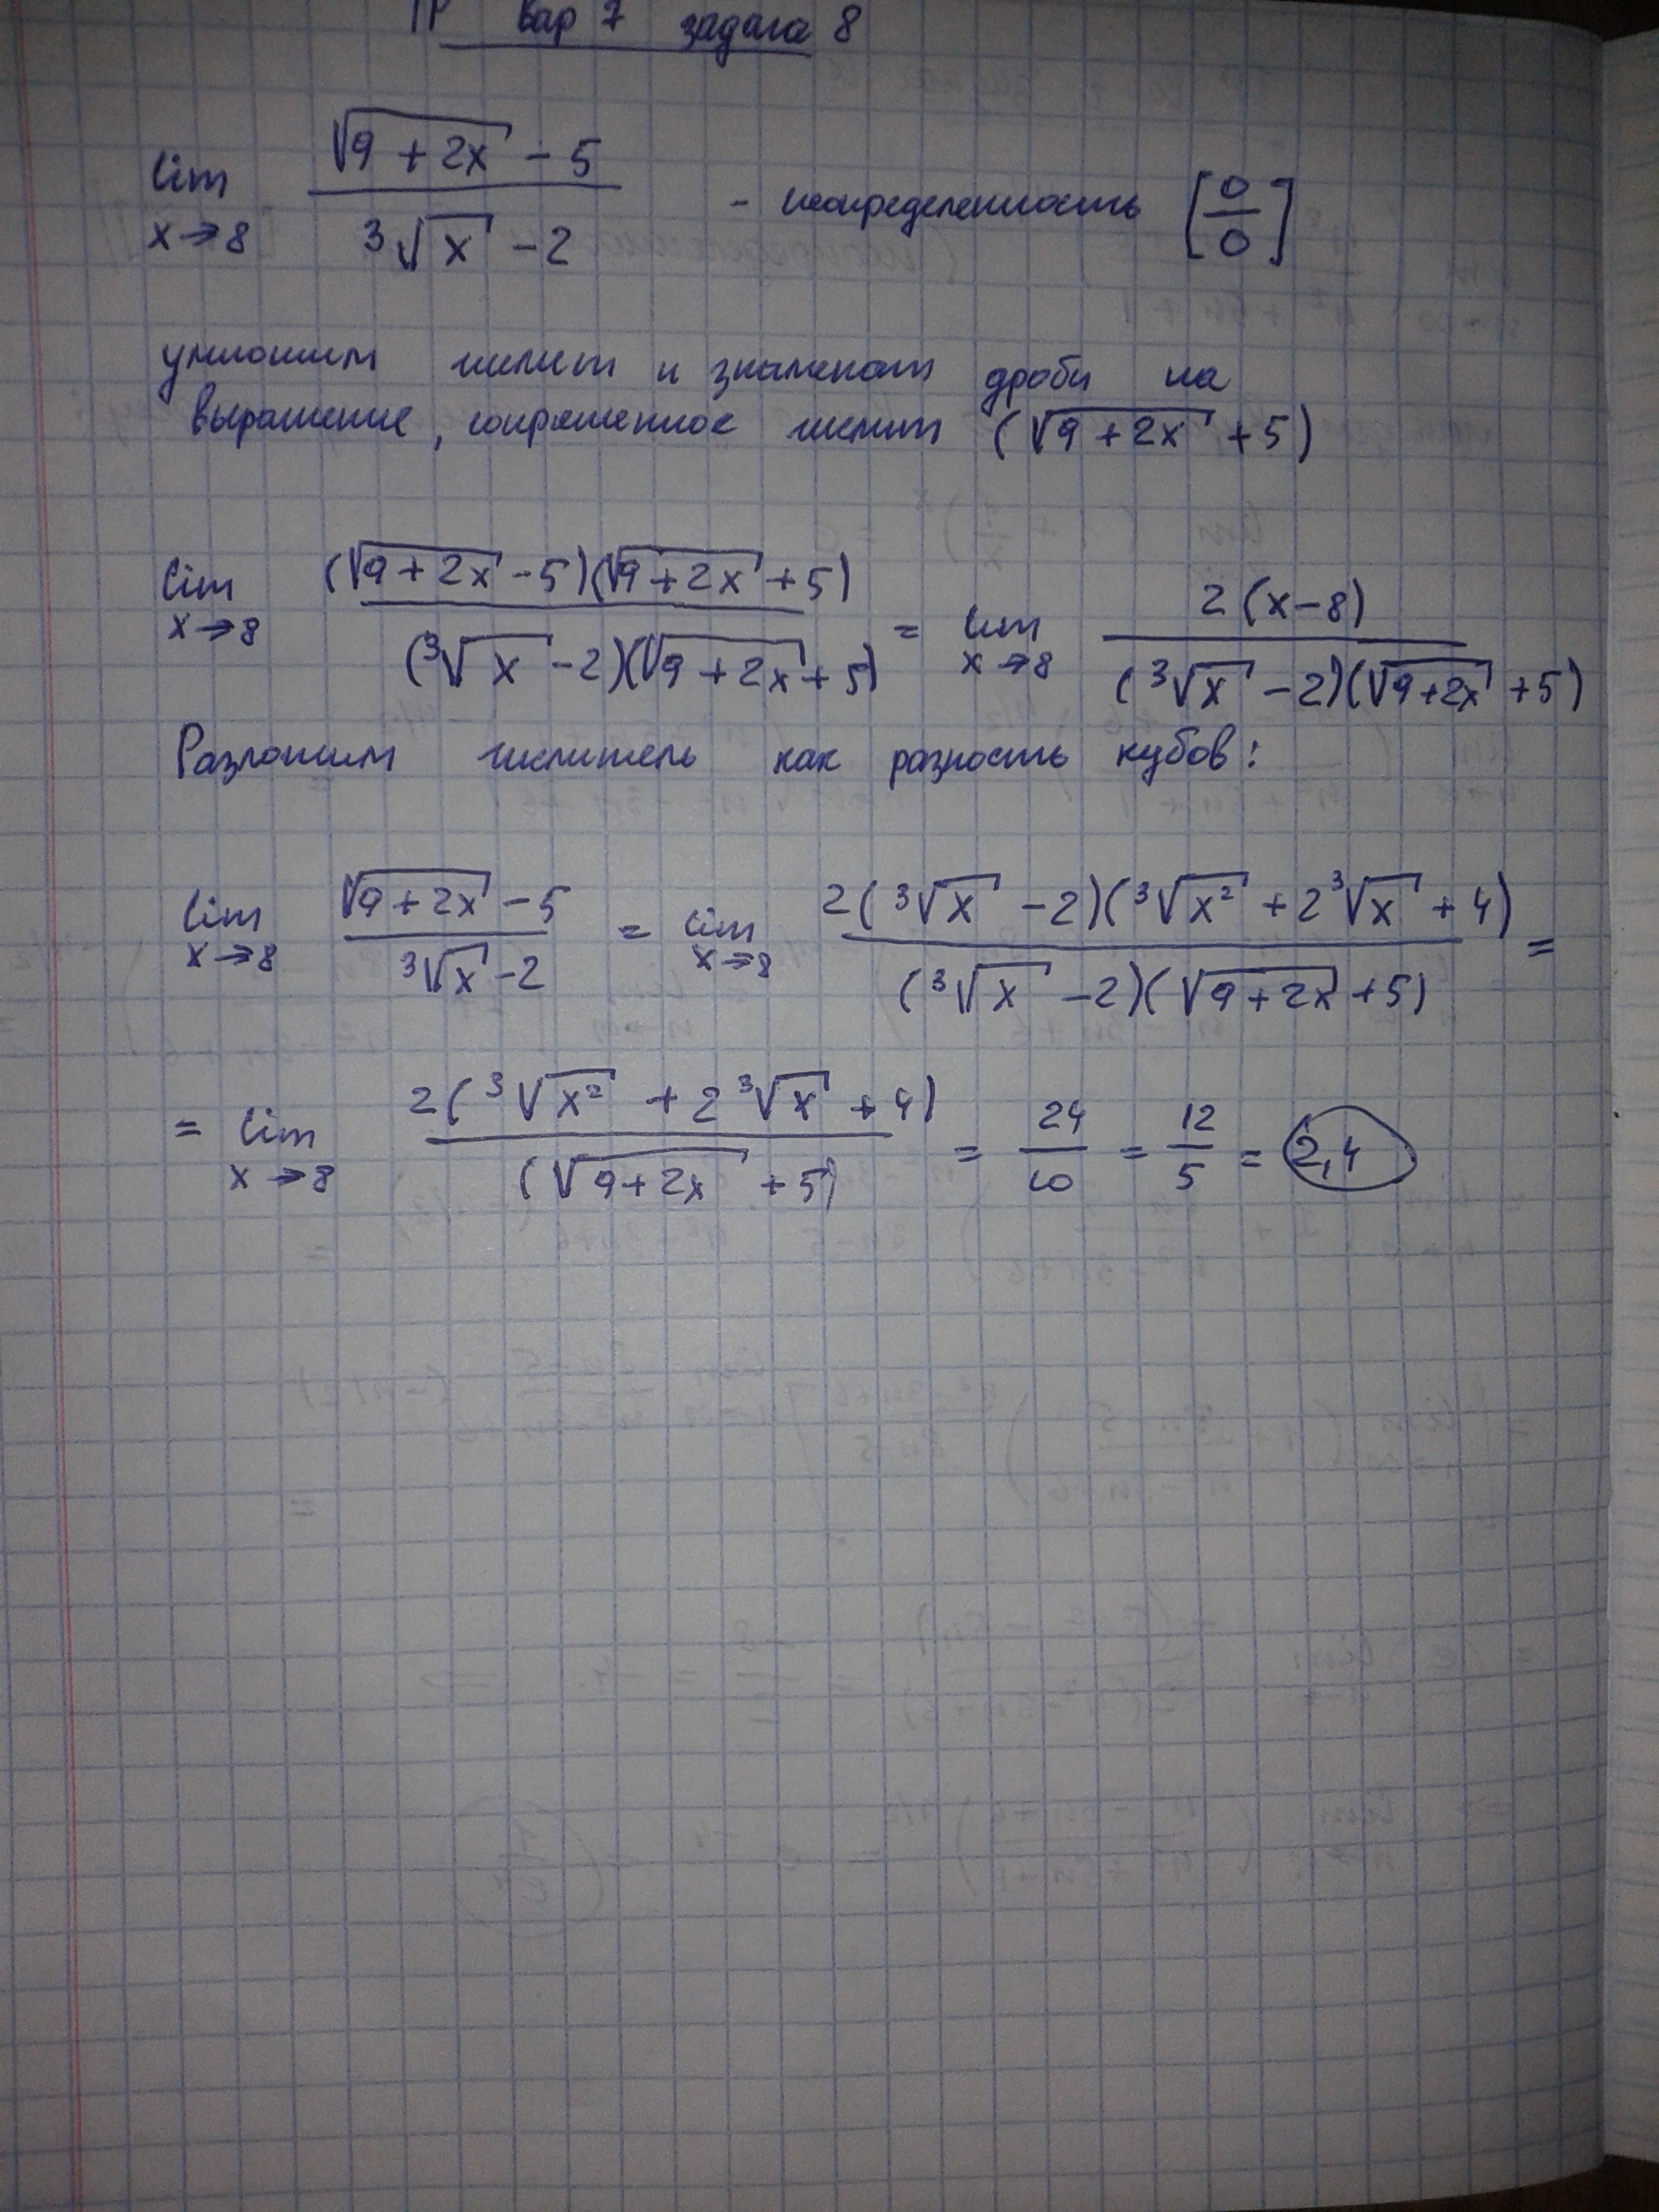 ТР вар 7 задача 8
lim x→8 (√(9+2x) - 5)/(³√x - 2) - неопределенность [0/0]
умножим числит и знаменат дроби на
выражение, сопряженное числит (√(9+2x) + 5)
lim x→8 ((√(9+2x) - 5)(√(9+2x) + 5))/((³√x - 2)(√(9+2x) + 5)) = lim x→8 (2(x-8))/((³√x - 2)(√(9+2x) + 5))
Разложим числитель как разность кубов:
lim x→8 (√(9+2x) - 5)/(³√x - 2) = lim x→8 (2(³√x - 2)(³√x² + 2³√x + 4))/((³√x - 2)(√(9+2x) + 5)) =
= lim x→8 (2(³√x² + 2³√x + 4))/((√(9+2x) + 5)) = 24/10 = 12/5 = 2,4